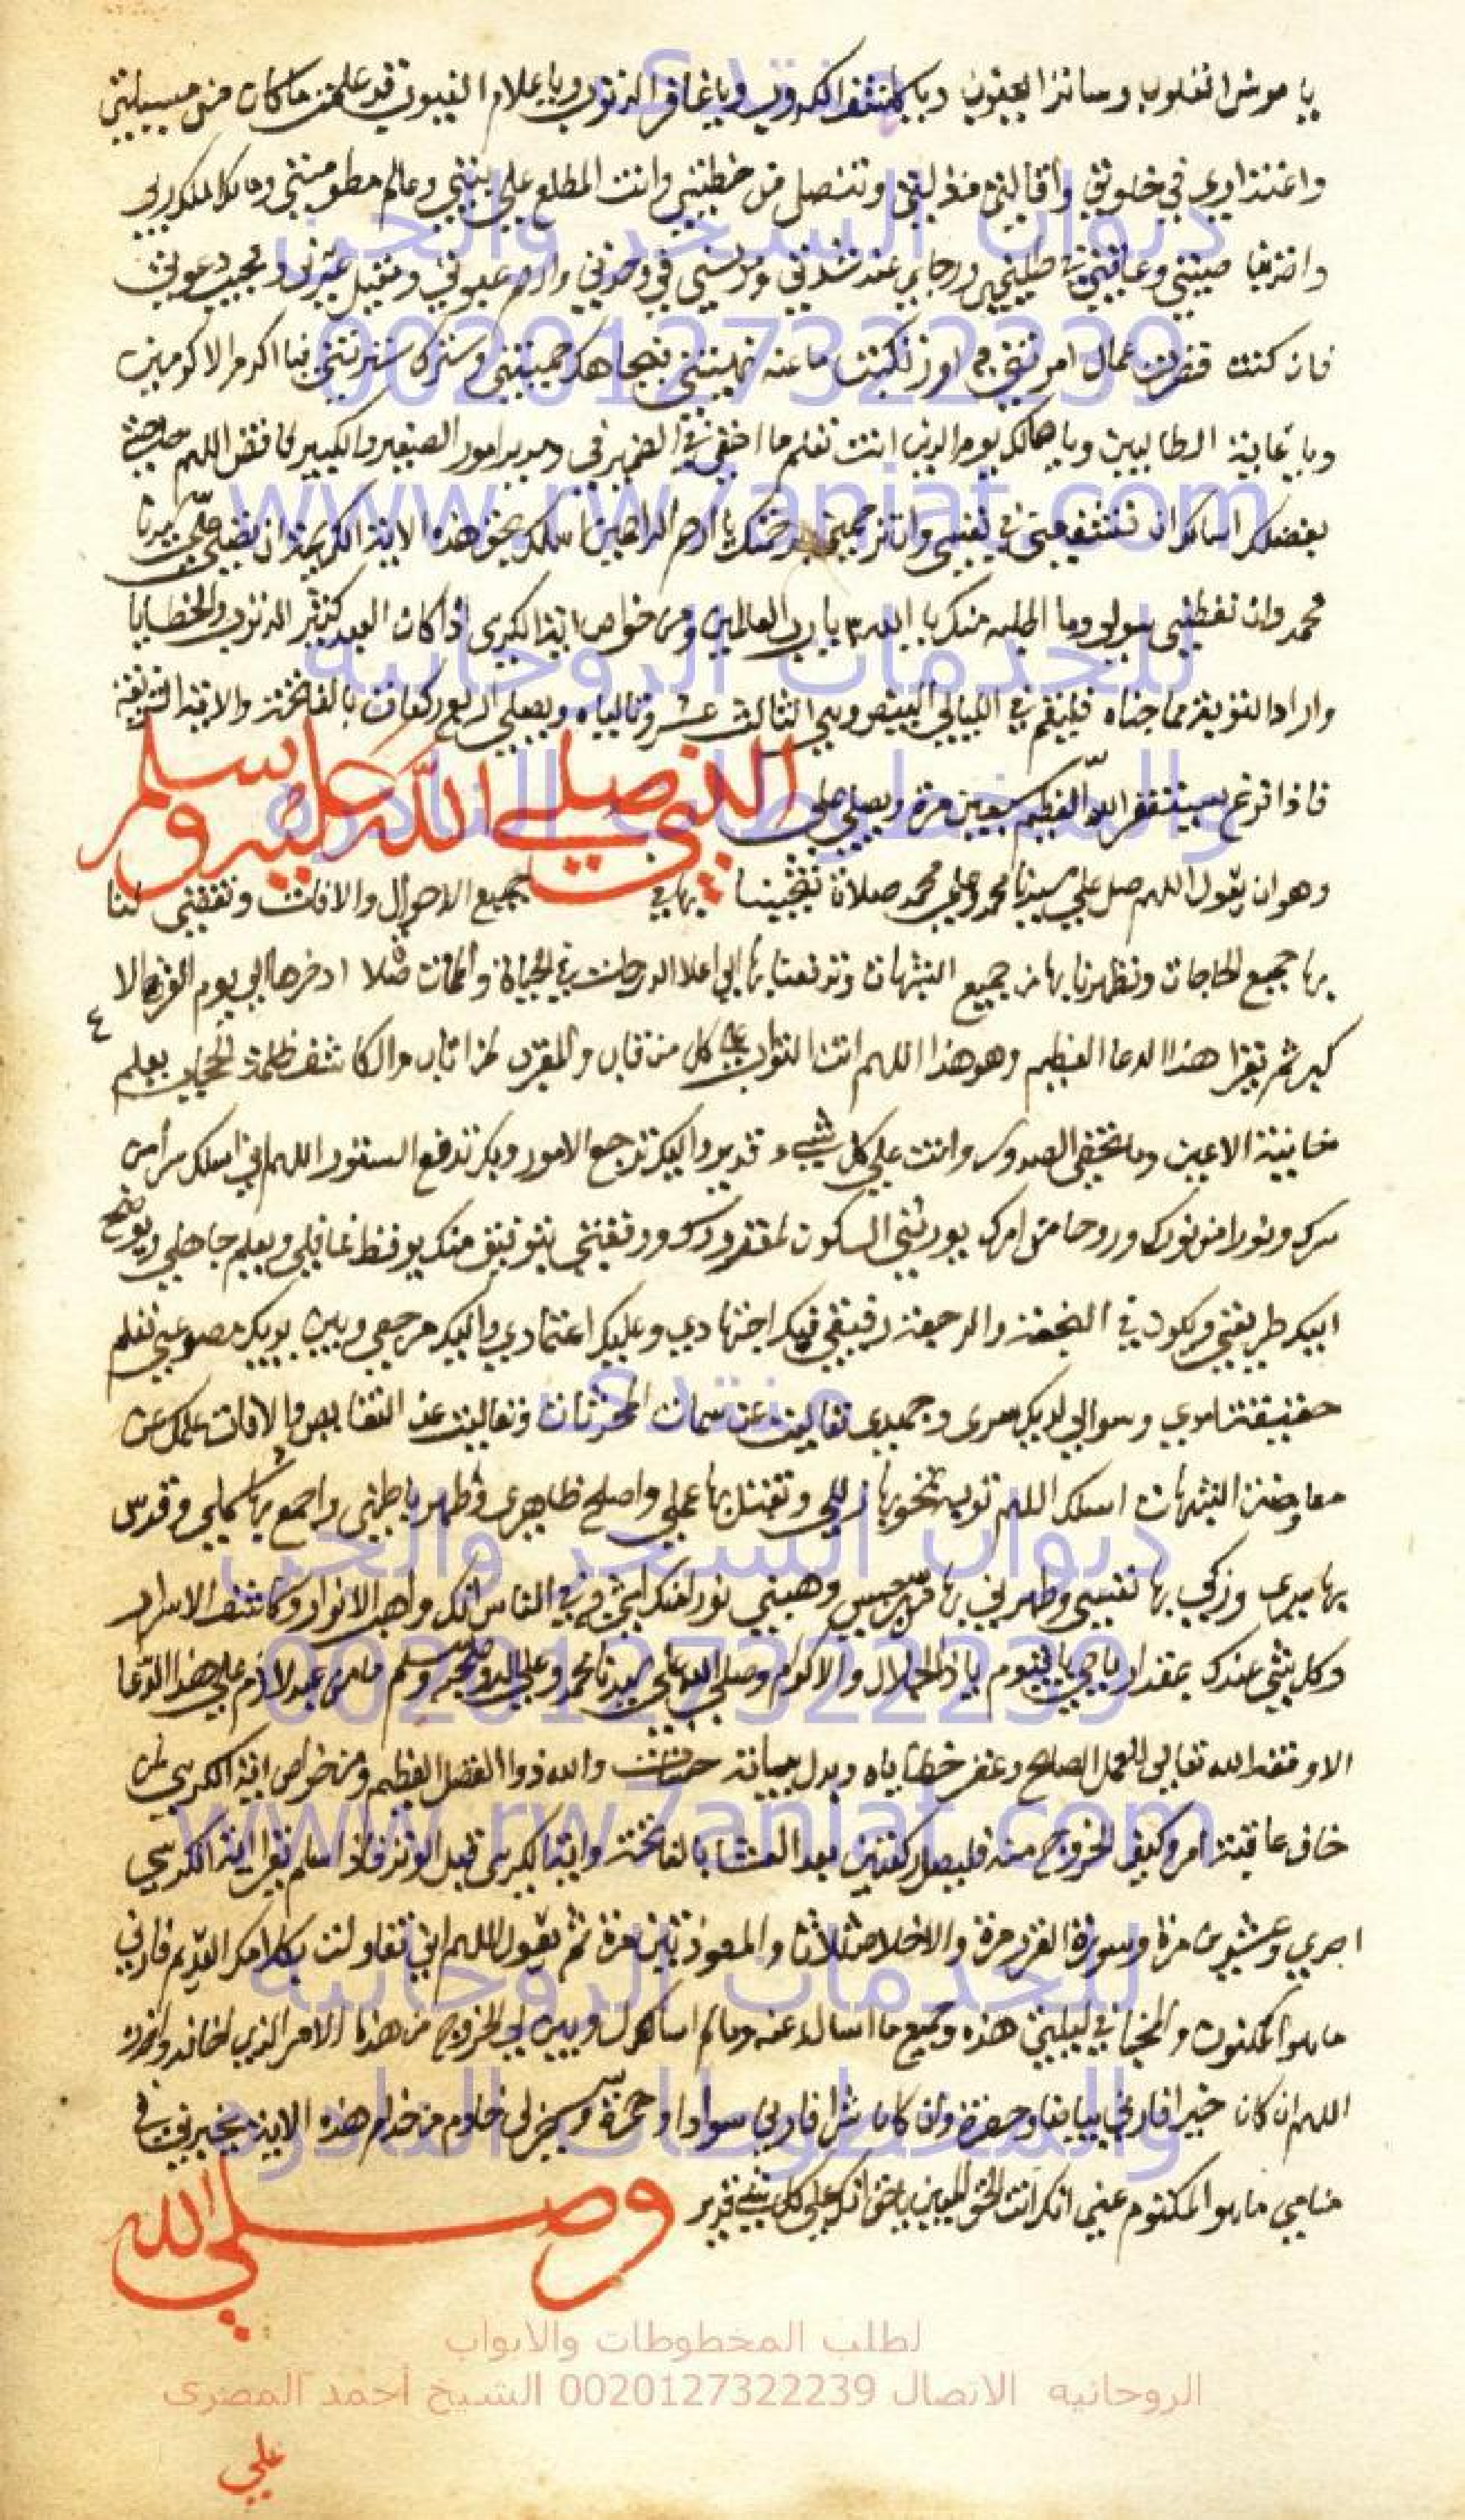 يا مونس القلوب وساتر العيوب ويا كاشف الكروب ويا غافر الذنوب ويا علام الغيوب قد علمت ما كان من
واعتذاري في خلوتي واقالتي من ذلتي وتنصل من خطيتي وانت المطلع علي نيتي وعالم مطويتي ومالك
وعافيتي ورجاي عند شدتي ومونسي في وحدتي وارحم عبرتي ومقيل عثرتي ومجيب دعوتي
فان كنت قصرت عما امرتني او ركبت ما عنه نهيتني فبجاهك حميتني وسترك سترتني فيا اكرم الاكرمين
ويا غاية الطالبين ويا مالك يوم الدين انت تعلم ما اخفي في الضمير ومدبر امور الصغير والكبير اللهم حاجتي
بفضلك اسالك ان في نفسي وان ترحمني برحمتك يا ارحم الراحمين اسلك بحق هذه الاية الكريمة ان تصلي علي سيدنا
محمد وان تعطيني سولي وما اطلبه منك يا الله ٣ يا رب العالمين ومن خواص اية الكرسي اذا كان العبد كثير الذنوب والخطايا
واراد التوبة مما جناه فليقم في الليالي البيض وهي الثالث عشر وتالياه ويصلي اربع ركعات بالفاتحة والاية الشريفة
فاذا فرغ يستغفر الله العظيم سبعين مرة ويصلي علي النبي صلي الله عليه وسلم
وهو ان يقول اللهم صل علي سيدنا محمد وعلي محمد صلاة تنجينا بها في جميع الاهوال والافات وتقضي لنا
بها جميع الحاجات وتطهرنا بها من جميع الشبهات وترفعنا بها الي اعلا الدرجات في الحياة والممات ادخرها الي يوم الفزع الا
كبر ثم يقرا هذا الدعا العظيم وهو هذا اللهم انت التواب علي كل من تاب والمقرب لمن اناب والكاشف ظلمة الحجاب يعلم
خاينة الاعين وما تخفي الصدور وانت علي كل شيء قدير واليك ترجع الامور وبك ترفع الستور اللهم اني اسلك سرا من
سرك ونورا من نورك وروحا من امرك يورثني السكون ووفقني بتوفيق منك يوقظ غافلي ويعلم جاهلي ويوضح
اليك طريقتي ويكون في الصحة والرجعة رفيقي فيك اجتهادي وعليك اعتمادي واليك مرجعي وبين يديك تعلم
حقيقة امري وسوالي لديك سري وجهري تعاليت عن سمات المحدثات وتعاليت عن النقايص والافات علمك عن
معارضة الشبهات اسلك اللهم توبة تمحو بها زللي وتقبل بها عملي واصلح ظاهري وطهر باطني واجمع بها شملي وقدس
بها سري وزكي بها نفسي وطهرني بها من رجسي وهبني نورا منك امشي به في الناس انك واهب الانوار وكاشف الاسرار
وكل شي عندك بمقدار يا حي يا قيوم يا ذا الجلال والاكرام وصلي الله علي سيدنا محمد وعلي اله وصحبه وسلم ما من عبد لازم علي هذا الدعا
الا وفقه الله تعالي للعمل الصالح وغفر خطاياه وبدل سيياته حسنات والله ذوا الفضل العظيم ومن خواص اية الكرسي لمن
خاف عاقبة امر وكيف الخروج منه فليصل ركعتين بعد العشا بالفاتحة واية الكرسي قبل الوتر فاذا سلم يقرا اية الكرسي
احدي وعشرين مرة وسورة القدر مرة والاخلاص ثلاثا والمعوذتين مرة ثم يقول اللهم اني تفاولت بكلامك القديم فارني
ما هو المكنون والمخبا في ليلتي هذه وجميع ما اسالك عنه وما لم اسالك وبين لي الخروج من هذا الامر الذي اخافه واحذره
اللهم ان كان خيرا فارني بياضا او خضرة وان كان شرا فارني سوادا او حمرة وسخر لي خادم من خدام هذه الاية يخبرني في
منامي ما هو المكتوم عني انك انت الحق المعين يا حق انك علي كل شي قدير وصلي الله
علي
منتدى
ديوان السحر والجن
0020127322239
www.rw7aniat.com
للخدمات الروحانية
والمخطوطات النادرة
منتدى
ديوان السحر والجن
0020127322239
www.rw7aniat.com
للخدمات الروحانية
والمخطوطات النادرة
لطلب المخطوطات والابواب
الروحانيه الاتصال 0020127322239 الشيخ أحمد المصرى